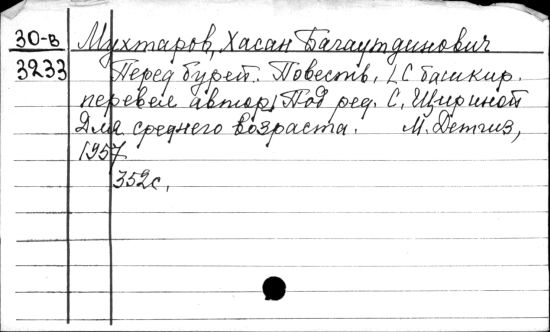 30-в Мухтаров, Хасан Багаутдинович
3233 Перед бурей. Повесть. /С башкир.
перевел автор. Под ред. С. Щириной
Для среднего возраста. М. Детгиз,
1957
352с.